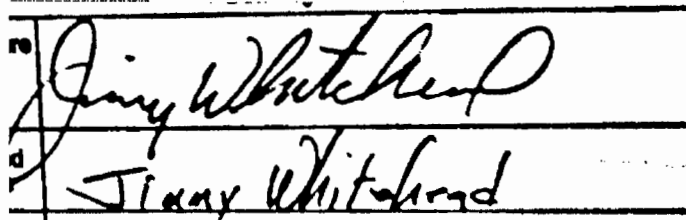 re Jimmy Whitehead
d Jimmy Whitehead